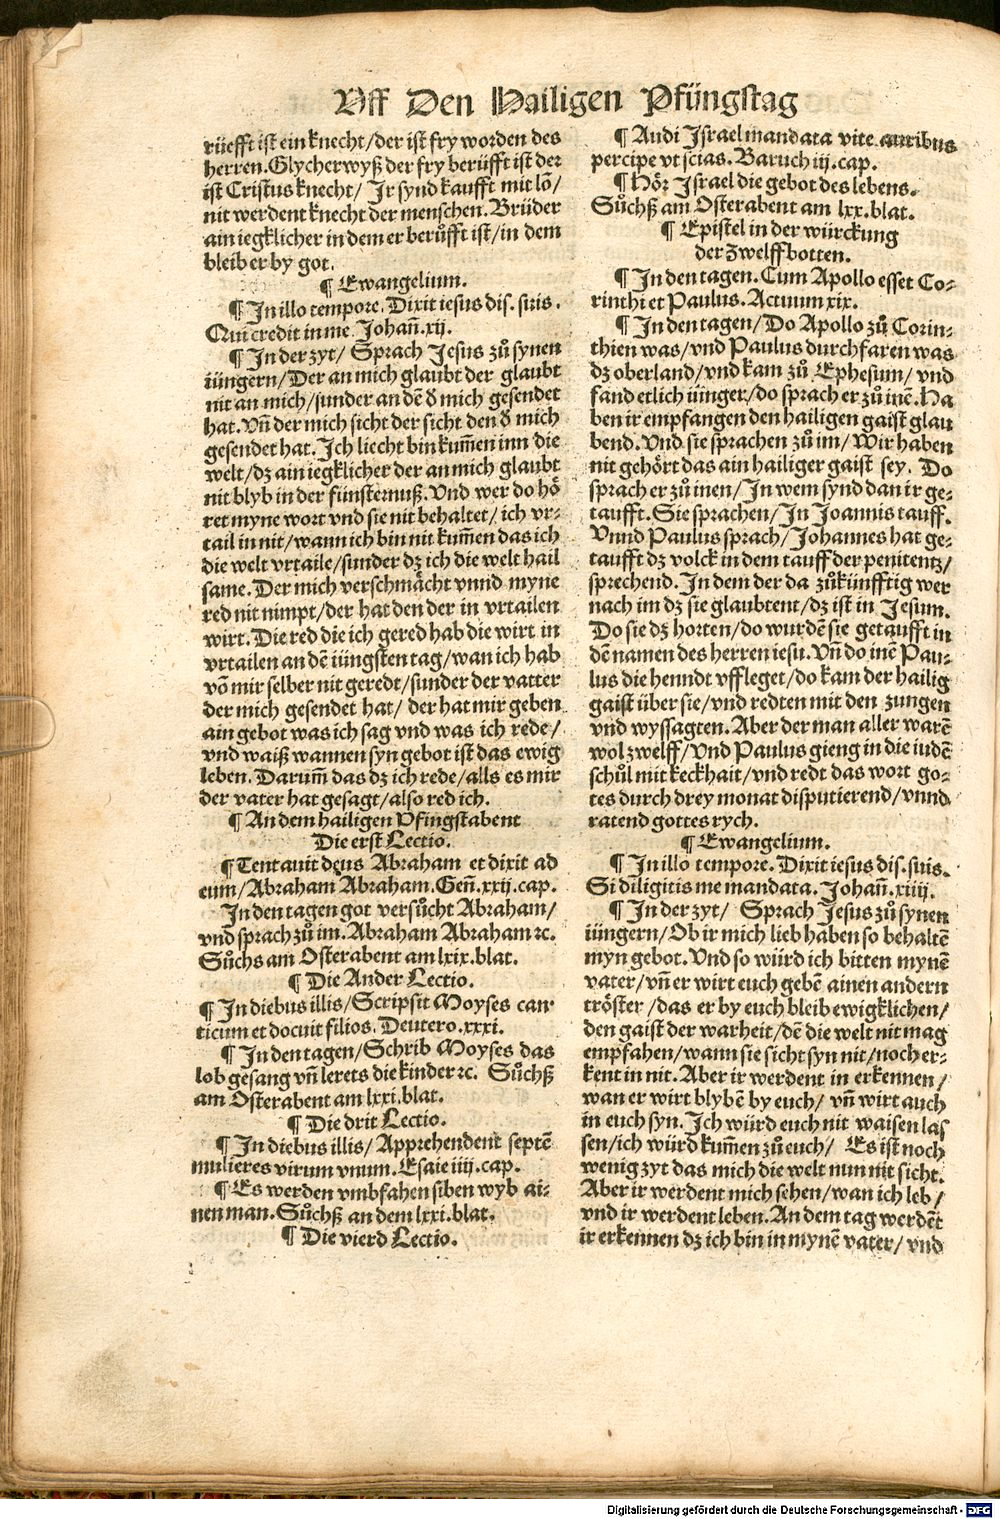 Vff Den Hailigen Pfüngstag
rüefft ist ein knecht/der ist fry worden des
herren. Glycherwyß der fry berüfft ist der
ist Cristus knecht/ Ir synd kaufft mit lõ/
nit werdent knecht der menschen. Brüder
ain iegklicher in dem er berůfft ist/in dem
bleib er by got.
¶ Ewangelium.
¶ In illo tempore. Dixit iesus dis. suis.
Qui credit in me. Johañ.xij.
¶ In der zyt/ Sprach Jesus zů synen
iüngern/Der an mich glaubt der glaubt
nit an mich/sunder an dẽ d̕ mich gesendet
hat. Vñ der mich sicht der sicht den d̕ mich
gesendet hat. Ich liecht bin kum̃en inn die
welt/dz ain iegklicher der an mich glaubt
nit blyb in der finsternuß. Vnd wer do hö
ret myne wort vnd sie nit behaltet/ ich vr⸗
tail in nit/wann ich bin nit kum̃en das ich
die welt vrtaile/sunder dz ich die welt hail
same. Der mich verschmächt vnnd myne
red nit nimpt/der hat den der in vrtailen
wirt. Die red die ich gered hab die wirt in
vrtailen an dẽ iüngsten tag/wan ich hab
võ mir selber nit geredt/sunder der vatter
der mich gesendet hat/ der hat mir geben
ain gebot was ich sag vnd was ich rede/
vnd waiß wannen syn gebot ist das ewig
leben. Darum̃ das dz ich rede/alls es mir
der vater hat gesagt/also red ich.
¶ An dem hailigen Pfingstabent
Die erst Lectio.
¶ Tentauit deus Abraham et dixit ad
eum/Abraham Abraham. Geñ.xxij.cap.
In den tagen got versůcht Abraham/
vnd sprach zů im. Abraham Abraham ⁊c.
Sůchs am Osterabent am lxix.blat.
¶ Die Ander Lectio.
¶ In diebus illis/Scripsit Moyses can
ticum et docuit filios. Deutero.xxxi.
¶ In den tagen/Schrib Moyses das
lob gesang vñ lerets die kinder ⁊c. Sůchß
am Osterabent am lxxi.blat.
¶ Die drit Lectio.
¶ In diebus illis/ Apprehendent septẽ
mulieres virum vnum. Esaie iiij.cap.
¶ Es werden vmbfahen siben wyb ai⸗
nen man. Sůchß an dem lxxi.blat.
¶ Die vierd Lectio.
¶ Audi Israel mandata vite auribus
percipe vt scias. Baruch iij.cap.
¶ Hör Israel die gebot des lebens.
Sůchß am Osterabent am lxx.blat.
¶ Epistel in der würckung
der Zwelffbotten.
¶ In den tagen. Cum Apollo esset Co⸗
rinthi et Paulus. Actuum xix.
¶ In den tagen/Do Apollo zů Corin⸗
thien was/vnd Paulus durchfaren was
dz oberland/vnd kam zů Ephesum/ vnd
fand etlich iünger/do sprach er zů inẽ. Ha
ben ir empfangen den hailigen gaist glau
bend. Vnd sie sprachen zů im/Wir haben
nit gehört das ain hailiger gaist sey. Do
sprach er zů inen/In wem synd dan ir ge⸗
taufft. Sie sprachen/In Joannis tauff.
Vnnd Paulus sprach/Johannes hat ge⸗
taufft dz volck in dem tauff der penitentz/
sprechend. In dem der da zůkünfftig wer
nach im dz sie glaubtent/dz ist in Jesum.
Do sie dz horten/do wurdẽ sie getaufft in
dẽ namen des herren iesu. Vñ do inẽ Pau⸗
lus die henndt vffleget/do kam der hailig
gaist über sie/vnd redten mit den zungen
vnd wyssagten. Aber der man aller warẽ
wol zwelff/Vnd Paulus gieng in die iudẽ
schůl mit keckhait/vnd redt das wort go⸗
tes durch drey monat disputierend/vnnd
ratend gottes rych.
¶ Ewangelium.
¶ In illo tempore. Dixit iesus dis. suis.
Si diligitis me mandata. Johañ.xiiij.
¶ In der zyt/ Sprach Jesus zů synen
iüngern/Ob ir mich lieb haben so behaltẽ
myn gebot. Vnd so würd ich bitten mynẽ
vater/vñ er wirt euch gebẽ ainen andern
tröster/das er by euch bleib ewigklichen/
den gaist der warheit/dẽ die welt nit mag
empfahen/wann sie sicht syn nit/noch er⸗
kent in nit. Aber ir werdent in erkennen/
wan er wirt blybẽ by euch/ vñ wirt auch
in euch syn. Ich würd euch nit waisen las
sen/ich würd kum̃en zů euch/ Es ist noch
wenig zyt das mich die welt nun nit sicht.
Aber ir werdent mich sehen/wan ich leb/
vnd ir werdent leben. An dem tag werdẽt
ir erkennen dz ich bin in mynẽ vater/ vnd
Digitalisierung gefördert durch die Deutsche Forschungsgemeinschaft - DFG